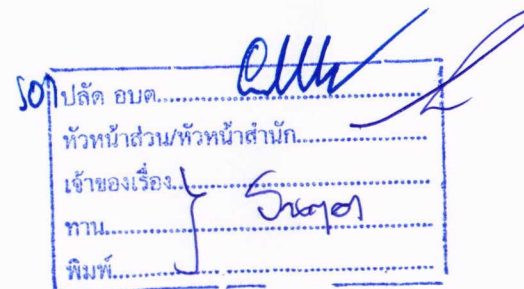 รองปลัด อบต..........
หัวหน้าส่วน/หัวหน้าสำนัก..........
เจ้าของเรื่อง..........
ทาน..........
พิมพ์..........